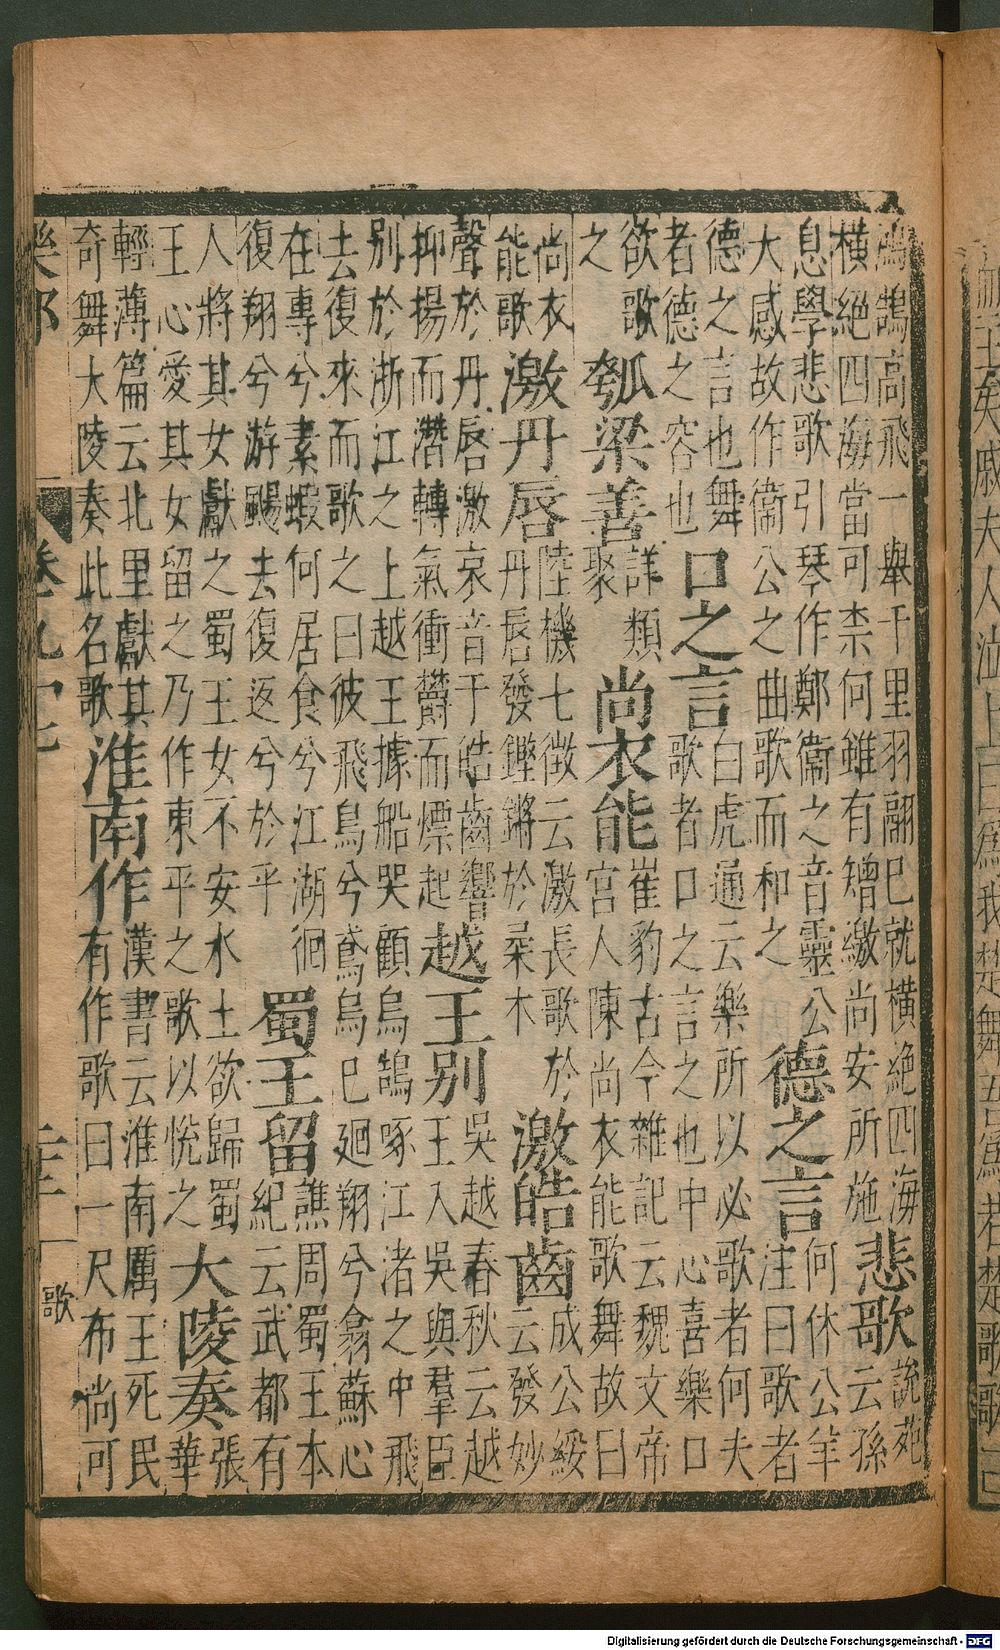 鴻鵠高飛一舉千里羽翮已就橫絕四海
橫絕四海當可柰何雖有矰繳尚安所施
悲歌
說苑
云孫
息學悲歌引琴作鄭衞之音靈公
大感故作衞公之曲歌而和之
德之言
何休公羊
注曰歌者
德之言也舞
者德之容也
口之言
白虎通云樂所以必歌者何夫
歌者口之言之也中心喜樂口
欲歌
之
瓠梁善
詳類
聚
尚衣能
崔豹古今雜記云魏文帝
宮人陳尚衣能歌舞故曰
尚衣
能歌
激丹唇
陸機七徴云激長歌於
丹唇發鏗鏘於梟木
激皓齒
成公綏
云發妙
聲於丹唇激哀音于皓齒響
抑揚而潛轉氣衝鬱而熛起
越王別
吳越春秋云越
王入吳與羣臣
別於浙江之上越王據船哭顧烏鵲啄江渚之中飛
去復來而歌之曰彼飛鳥兮鳶烏已廻翔兮翕蘇心
在專兮素蝦何居食兮江湖徊
復翔兮游颺去復返兮於乎
蜀王留
譙周蜀王本
紀云武都有
人將其女獻之蜀王女不安水土欲歸蜀
王心愛其女留之乃作東平之歌以悅之
大陵奏
張
華
輕薄篇云北里獻其
奇舞大陵奏此名歌
淮南作
漢書云淮南厲王死民
有作歌曰一尺布尚可
卷九
歌
Digitalisierung gefördert durch die Deutsche Forschungsgemeinschaft - DFG